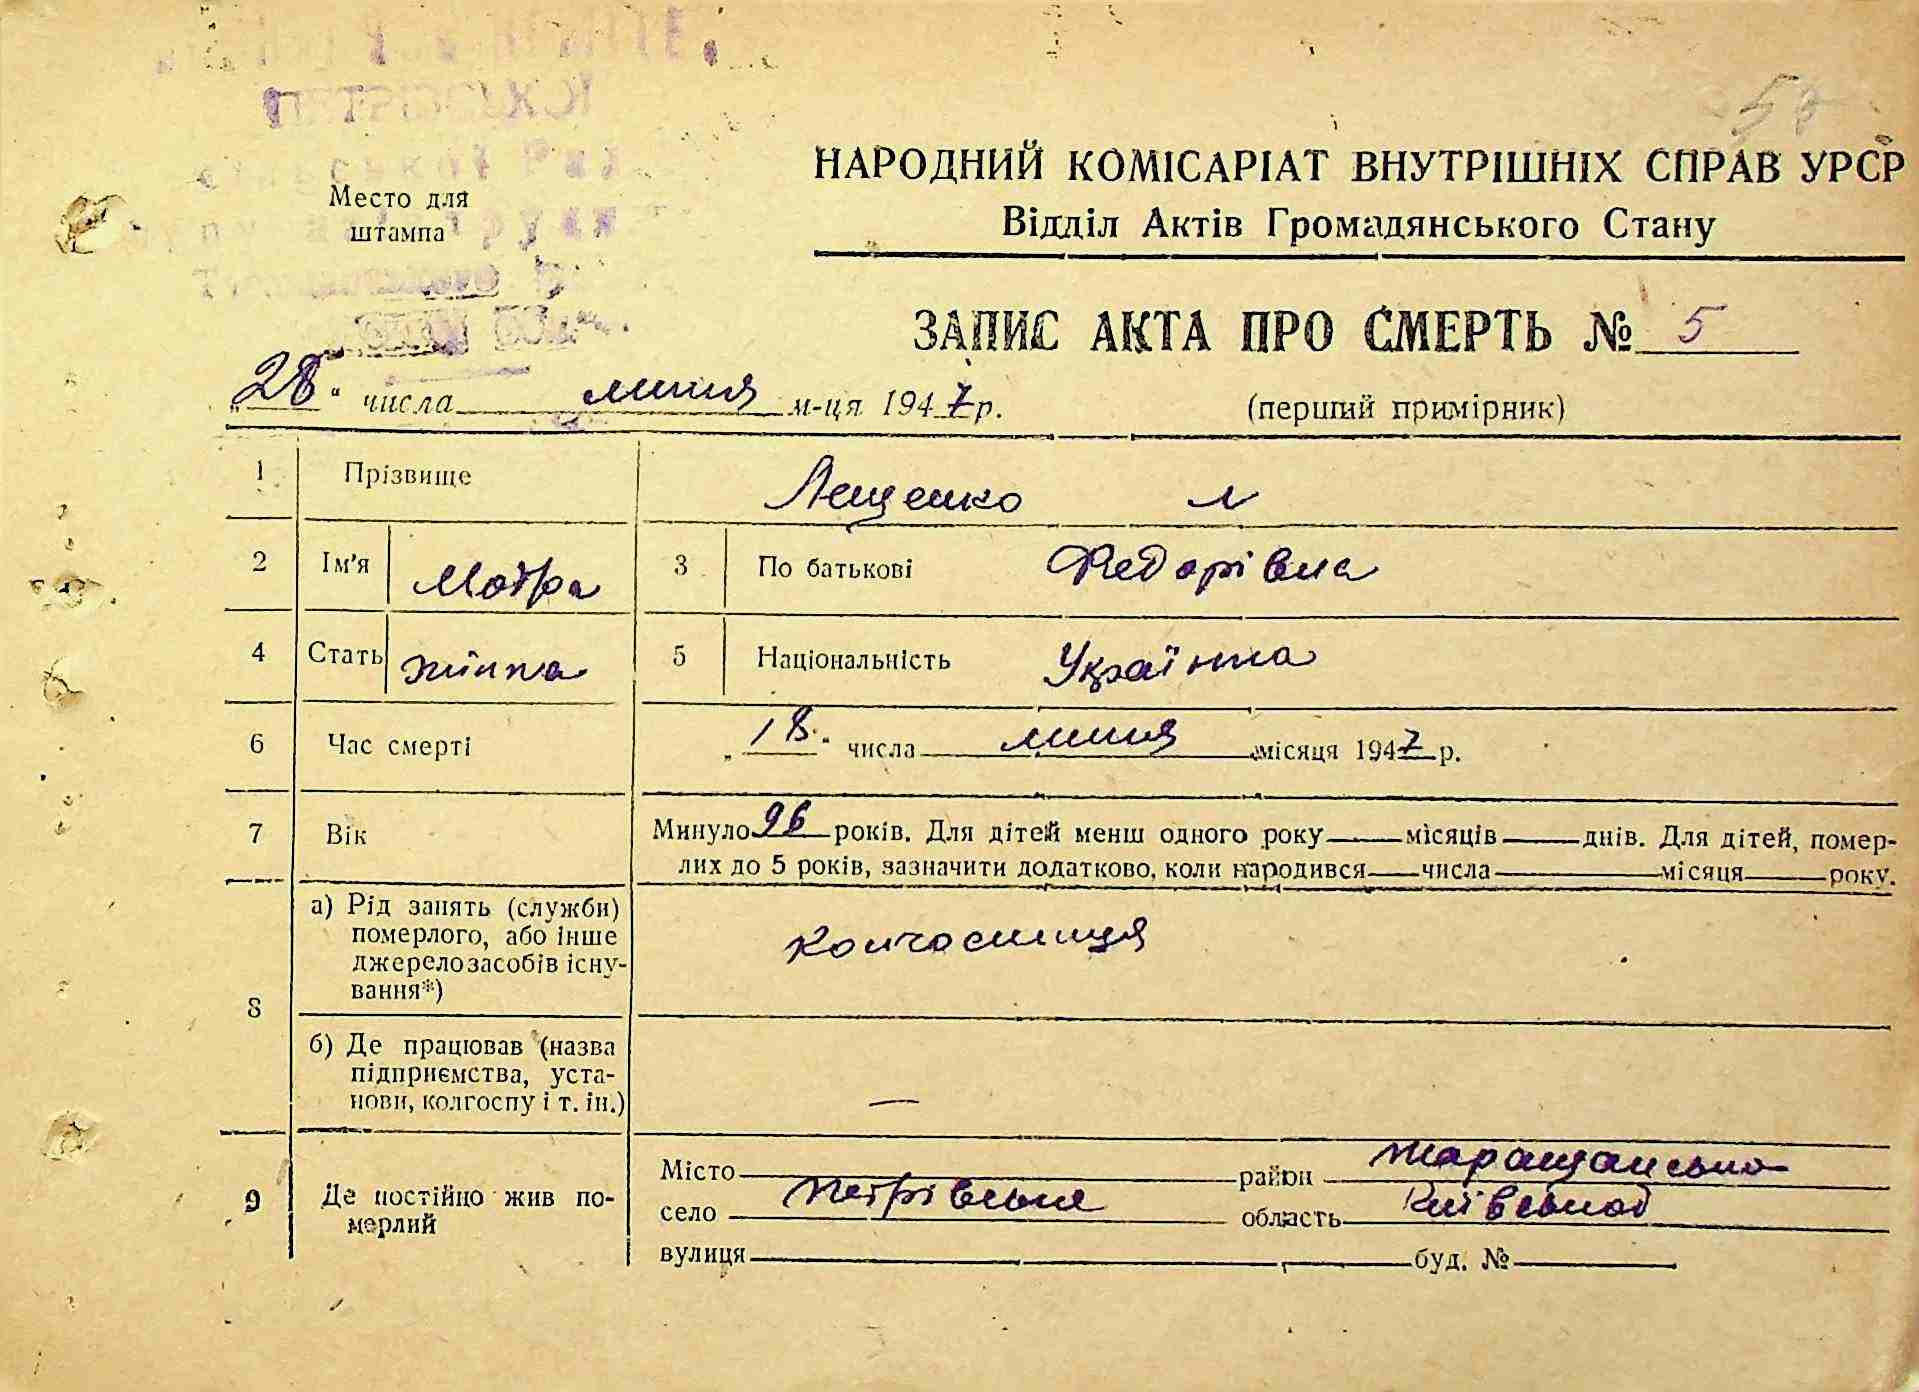 50
НАРОДНИЙ КОМІСАРІАТ ВНУТРІШНІХ СПРАВ УРСР
Відділ Актів Громадянського Стану
Место для
штампа
ЗАПИС АКТА ПРО СМЕРТЬ № 5
„28“ числа липня м-ця 1947 р.
(перший примірник)
1 Прізвище Лещенко
2 Ім'я Мотра 3 По батькові Федорівна
4 Стать жінка 5 Національність Українка
6 Час смерті „18“ числа липня місяця 1947 р.
7 Вік Минуло 96 років. Для дітей менш одного року місяців днів. Для дітей, помер-
лих до 5 років, зазначити додатково, коли народився числа місяця року.
8 а) Рід занять (служби)
померлого, або інше
джерело засобів існу-
вання*)
колгоспниця
б) Де працював (назва
підприємства, уста-
нови, колгоспу і т. ін.)
—
9 Де постійно жив по-
мерлий
Місто район Таращансько
село Петрівська область Київської
вулиця буд. №